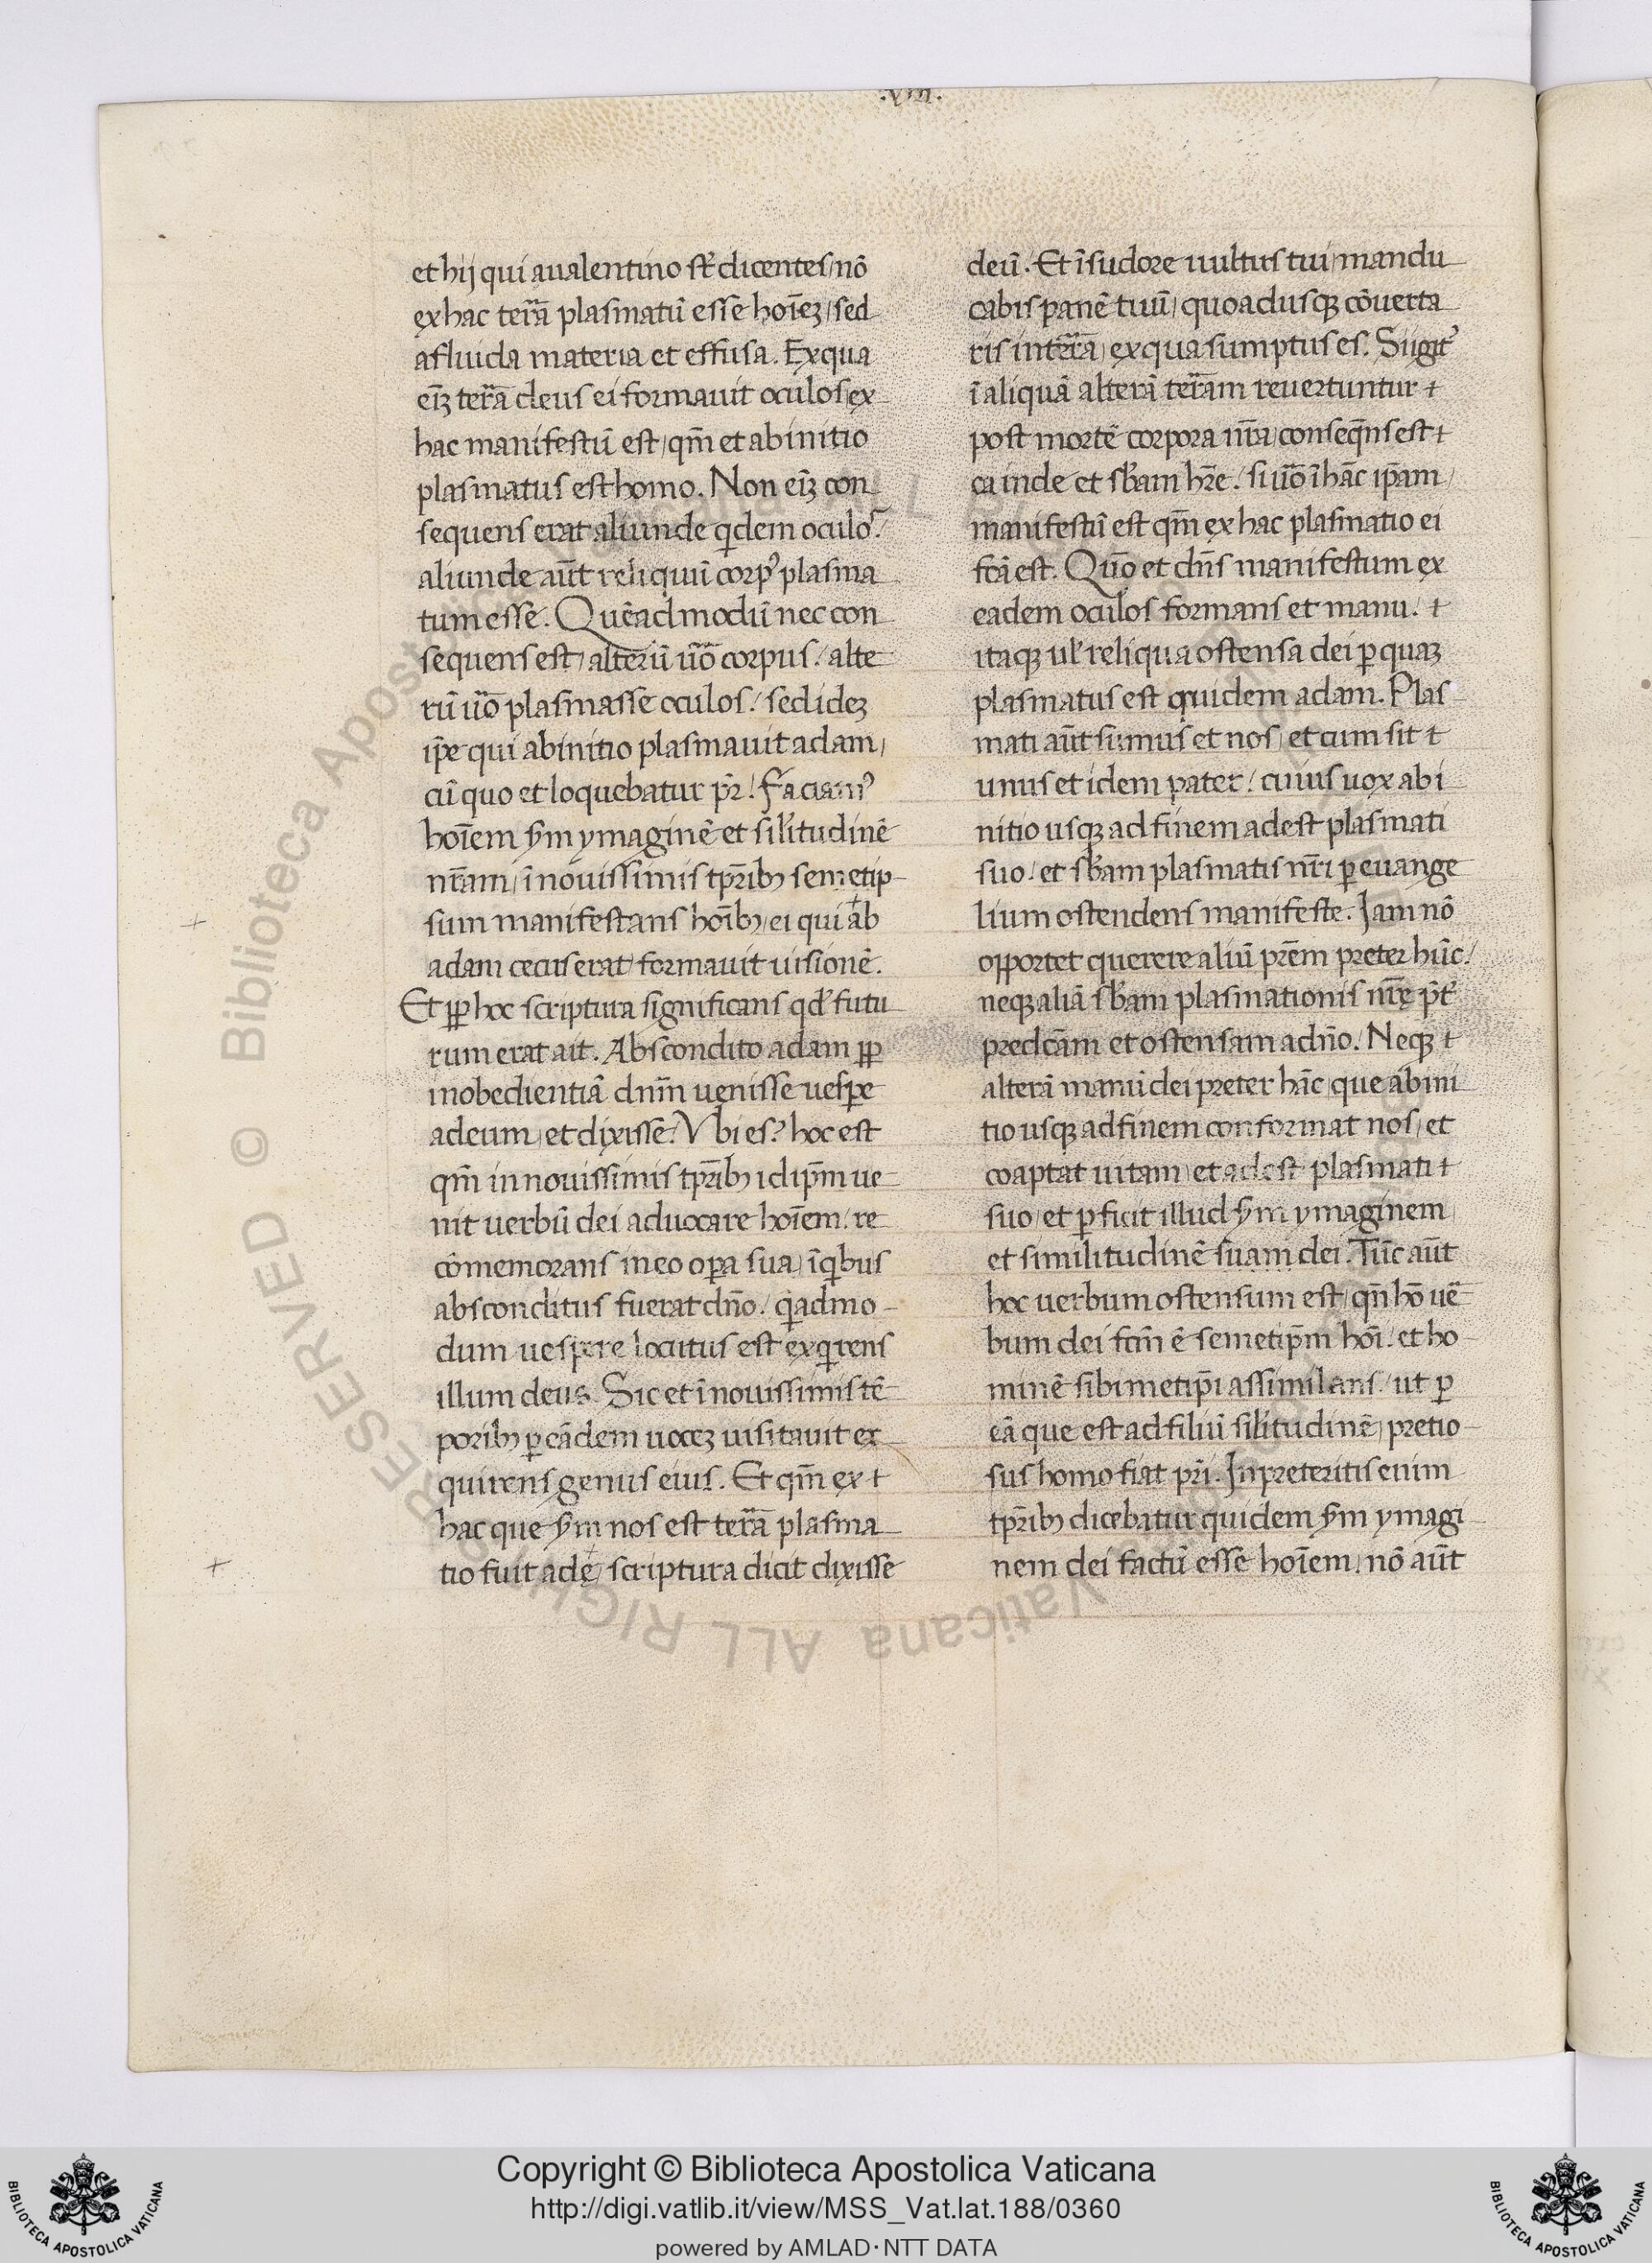 .xiii.
et hij qui aualentino st̄ dicentes/ nō
ex hac terrā plasmatū esse hoīez/ sed
afluida materia et effusa. Ex qua
eīz terrā deus ei formauit oculos ex
hac manifestū est/ qm̄ et ab initio
plasmatus est homo. Non eīz con
sequens erat aliunde qidem oculoꝝ/
aliunde aūt reliquū corpꝰ plasma
tum esse. Quēadmodū nec con
sequens est/ alterū uō corpus/ alte
rū uō plasmasse oculos/ sed idez
ip̄e qui ab initio plasmauit adam/
cū quo et loquebatur pr̄/ faciamꝰ
hoīem sc̄dm ymaginē et sil̄itudinē
nr̄am/ ī nouissimis tp̄ribꝫ semetip
sum manifestans hoībꝫ/ ei qui ab
adam cecus erat/ formauit uisionē.
Et ꝓp hoc scriptura significans qd̄ futu
rum erat ait. Abscondito adam ꝓp
inobedientiā dnm̄ uenisse uesꝑe
ad eum/ et dixisse. Vbi es? hoc est
qm̄ in nouissimis tp̄ribꝫ idip̄m ue
nit uerbū dei aduocare hoīem/ re
cōmemorans in eo oꝑa sua/ īqibus
absconditus fuerat dn̄o/ qēadmo
dum uespere locutus est exqirens
illum deus. Sic et ī nouissimis tē
poribꝫ ꝑ eādem uocez uisitauit ex
quirens genus eius. Et qm̄ ex
hac que sc̄dm nos est terrā plasma
tio fuit ade/ scriptura dicit dixisse
deū. Et ī sudore uultus tui/ mandu
cabis panē tuū/ quoadusqꝫ cōuerta
ris in terrā/ ex qua sumptus es. Si igit᷑
ī aliquā alterā terrā̄m reuertuntur
post mortē corpora nr̄a/ conseqūns est
ea inde et sb̄am hr̄e/ si uō ī hāc ip̄am/
manifestū est qm̄ ex hac plasmatio ei
fc̄ā est. Quō et dn̄s manifestum ex
eadem oculos formans et manu/
itaqꝫ ul̄ reliqua ostensa dei ꝑ quaz
plasmatus est quidem adam. Plas
mati aūt sumus et nos/ et cum sit
unus et idem pater/ cuius uox ab i
nitio usqꝫ ad finem adest plasmati
suo/ et sb̄am plasmatis nr̄i ꝑ euange
lium ostendens manifeste. Jam nō
opportet querere aliū pr̄em preter hūc/
neqꝫ aliā sb̄am plasmationis nr̄ę p̄t᷑
predc̄am et ostensam adn̄o. Neqꝫ
alterā manū dei preter hāc/ que ab ini
tio usqꝫ ad finem conformat nos/ et
coaptat uitam/ et adest plasmati
suo/ et ꝑficit illud sc̄dm ymaginem/
et similitudinē suam dei. Tūc aūt
hoc uerbum ostensum est/ qn̄ hō ue᷑
bum dei fcm̄ ē semetip̄m hoī/ et ho
minē sibimetip̄i assimilans/ ut ꝑ
eā que est ad filiū sil̄itudinē/ pretio
sus homo fiat pr̄i. In preteritis enim
tp̄ribꝫ dicebatur quidem sc̄dm ymagi
nem dei factū esse hoīem/ nō aūt
© Biblioteca Apostolica Vaticana ALL RIGHTS RESERVED
Copyright © Biblioteca Apostolica Vaticana
http://digi.vatlib.it/view/MSS_Vat.lat.188/0360
powered by AMLAD·NTT DATA
BIBLIOTECA APOSTOLICA VATICANA
BIBLIOTECA APOSTOLICA VATICANA